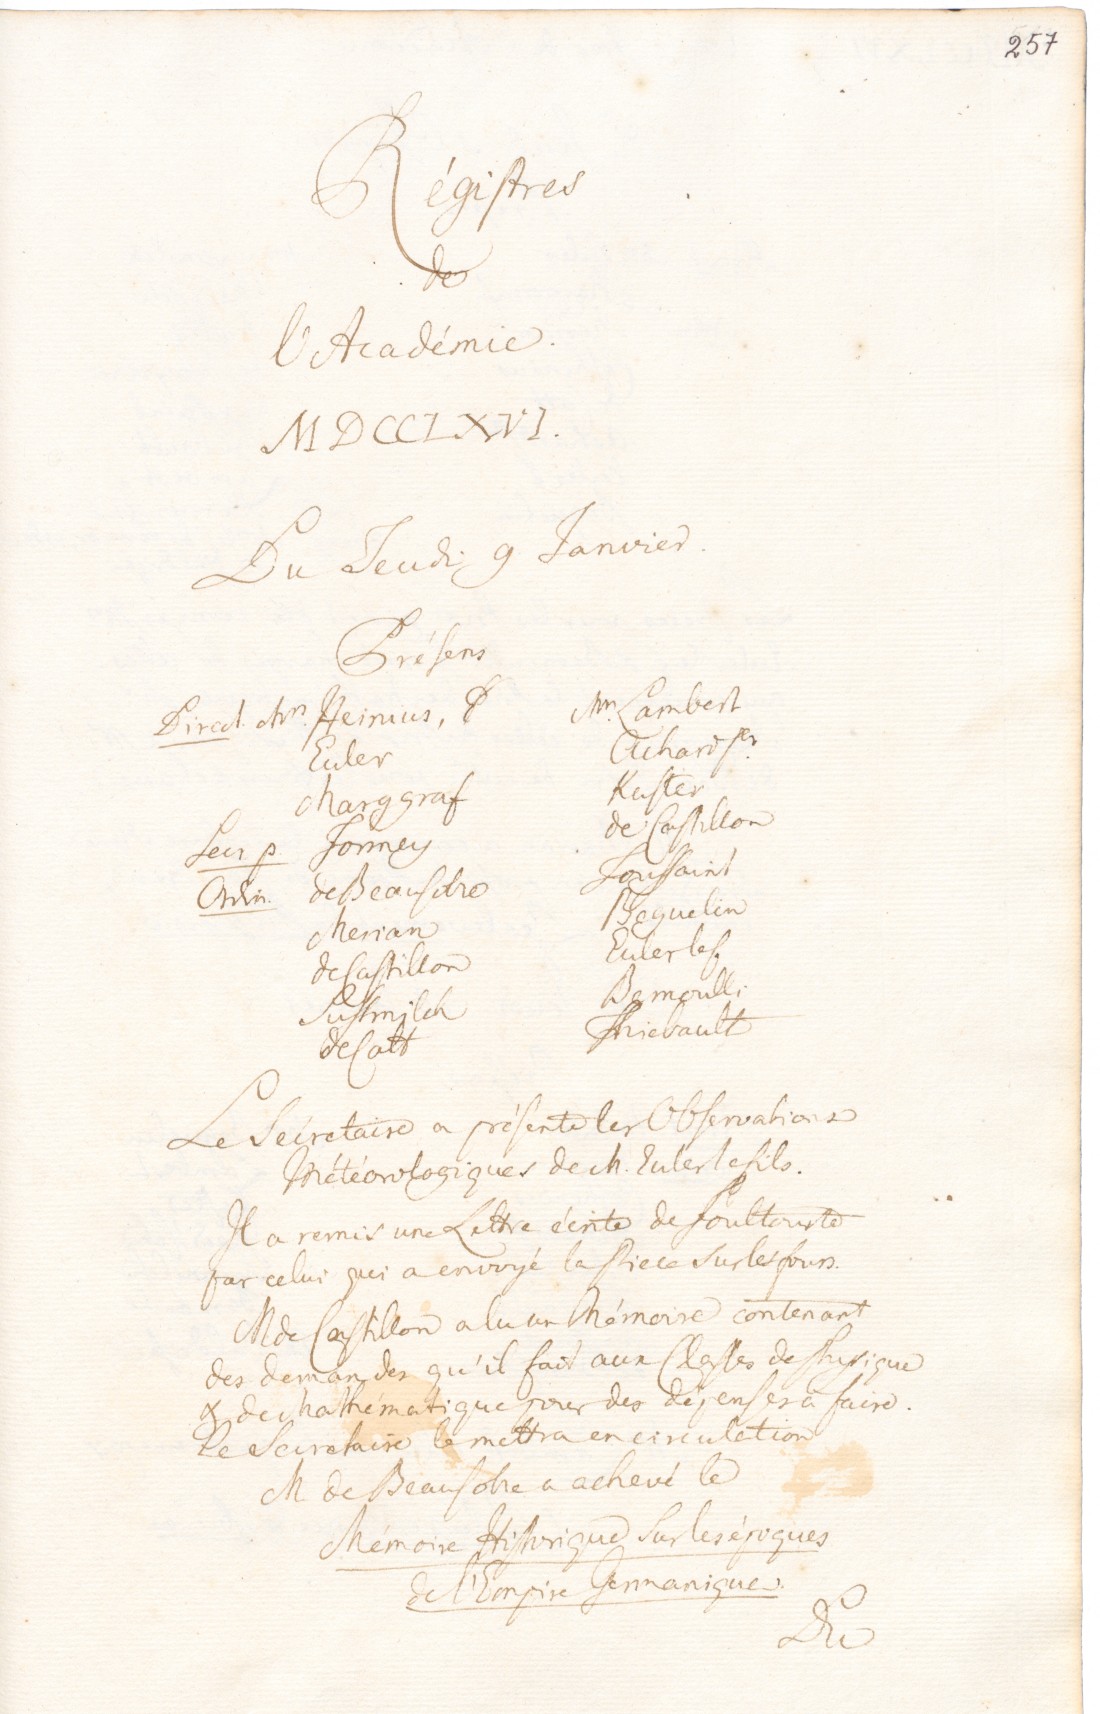 257
Régistres
de
l'Académie.
MDCCLXVI.
Du Jeudi 9 Janvier.
Présens
Direct. Mrs. Heinius,
Euler
Marggraf
Secr. p. Formey
Ordin. de Beausobre
Merian
de Castillon
Sussmilch
de Catt
Mrs. Lambert
Achard Pr.
Kuster
de Castillon
Toussaint
Beguelin
Euler le f.
Bernoulli
Thiebault
Le Sécretaire a présenté les Observations
Météorologiques de M. Euler le fils.
Il a remis une Lettre écrite de
par celui qui a envoyé la Piece sur les fours.
M de Castillon a lu un Mémoire contenant
des demandes qu'il fait aux Classes de Physique
& de Mathématique pour des dépenses à faire.
Le Secretaire le mettra en circulation
M de Beausobre a achevé le
Mémoire Historique sur les époques
de l'Empire Germanique.
Du